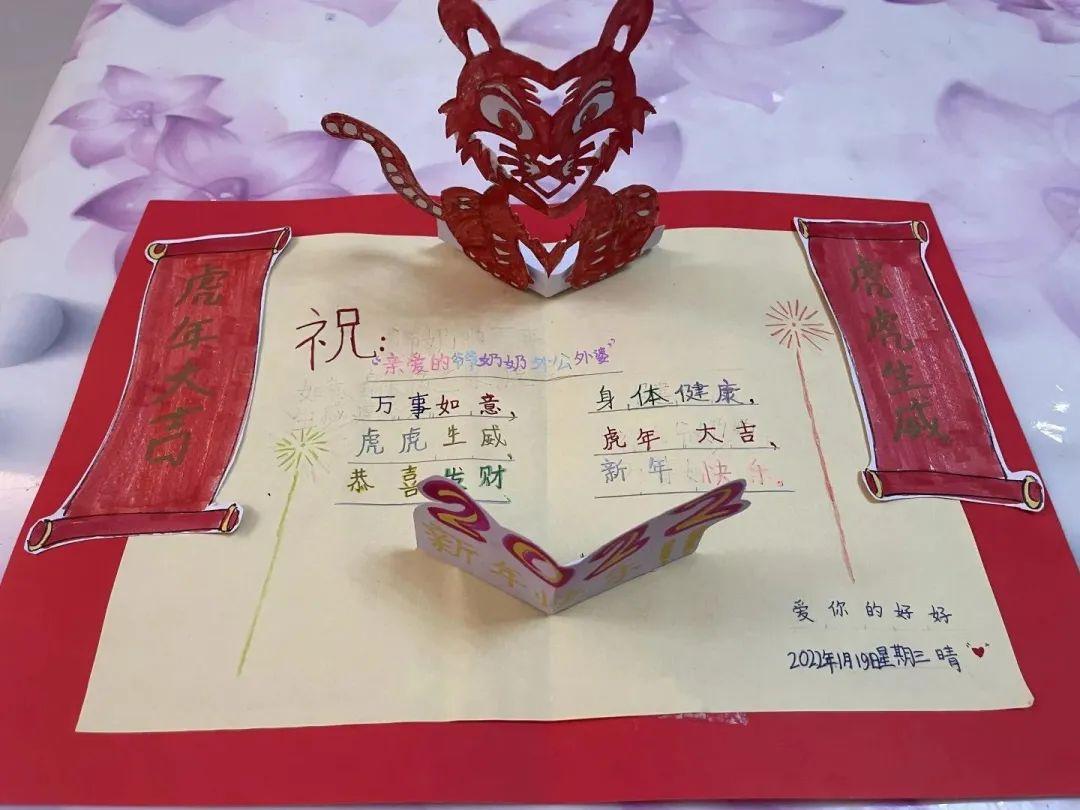 虎年大吉
虎虎生威
祝:
"亲爱的爷爷奶奶外公外婆"
万事如意,
身体健康,
虎虎生威,
虎年大吉,
恭喜发财
新年快乐。
2022
新年快乐!!
爱你的好好
2022年1月19日星期三 晴